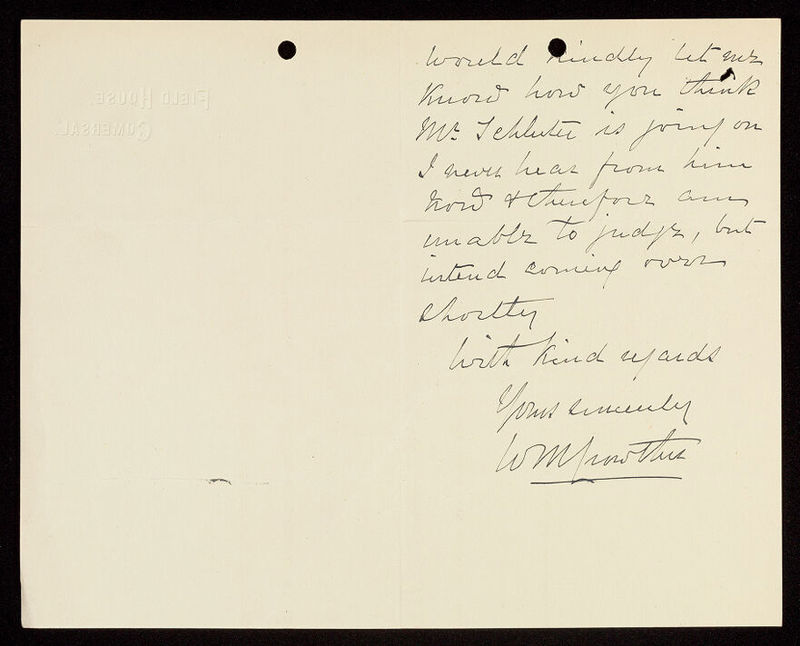 FIELD HOUSE,
GOMERSAL.
would kindly let me
know how you think
Mr. Schluter is going on
I never hear from him
now & therefore am
unable to judge, but
intend coming over
shortly
With kind regards
Yours sincerely
WMCrowther